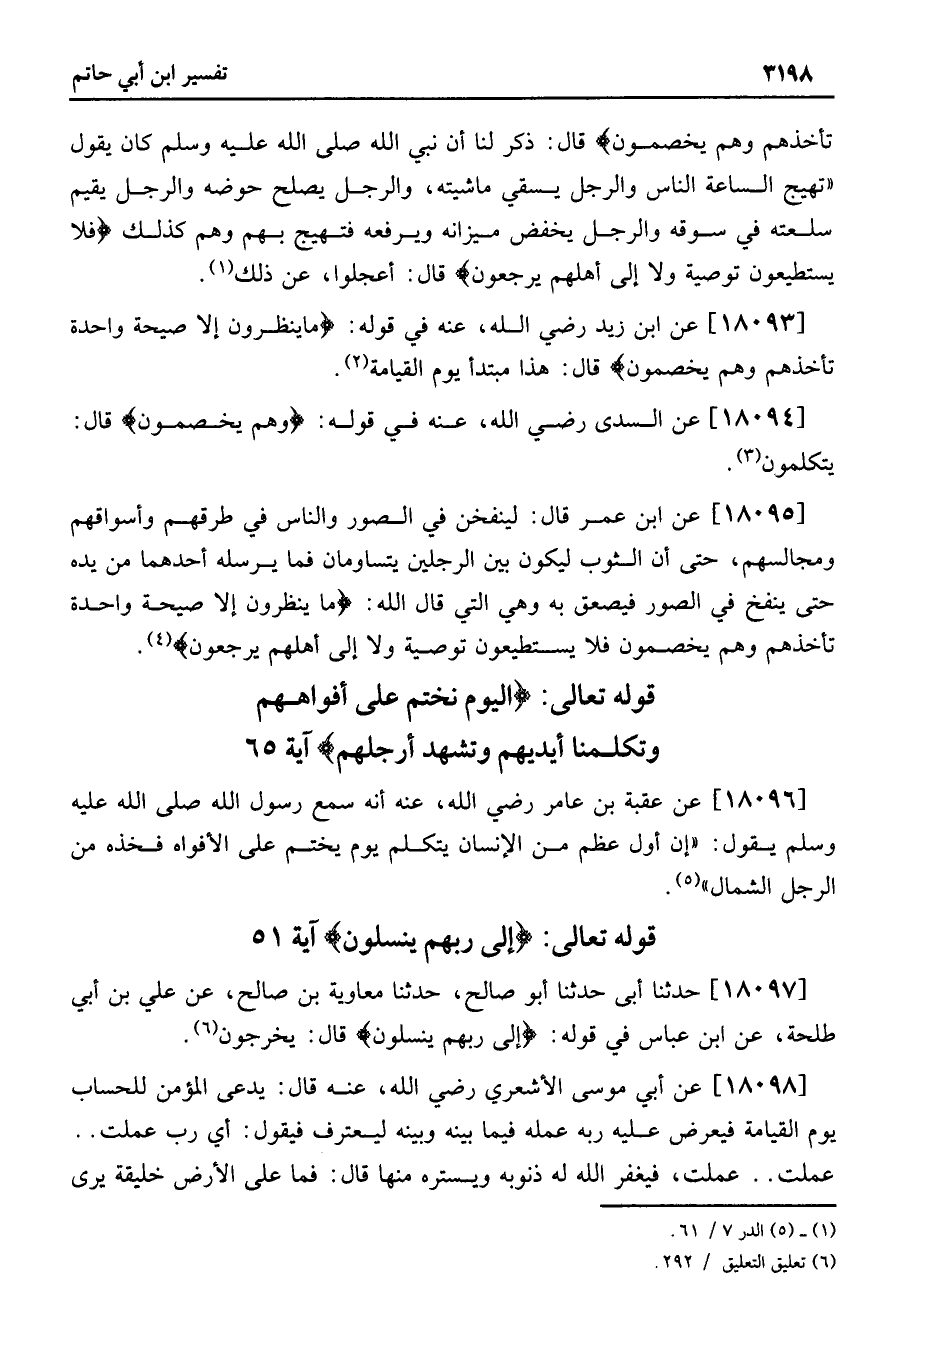 ٣١٩٨ تفسير ابن أبي حاتم
تأخذهم وهم يخصمون﴾ قال: ذكر لنا أن نبي الله صلى الله عليه وسلم كان يقول
«تهيج الساعة الناس والرجل يسقي ماشيته، والرجل يصلح حوضه والرجل يقيم
سلعته في سوقه والرجل يخفض ميزانه ويرفعه فتهيج بهم وهم كذلك ﴿فلا
يستطيعون توصية ولا إلى أهلهم يرجعون﴾ قال: أعجلوا، عن ذلك(١).
[١٨٠٩٣] عن ابن زيد رضي الله، عنه في قوله: ﴿ماينظرون إلا صيحة واحدة
تأخذهم وهم يخصمون﴾ قال: هذا مبتدأ يوم القيامة(٢).
[١٨٠٩٤] عن السدى رضي الله، عنه في قوله: ﴿وهم يخصمون﴾ قال:
يتكلمون(٣).
[١٨٠٩٥] عن ابن عمر قال: لينفخن في الصور والناس في طرقهم وأسواقهم
ومجالسهم، حتى أن الثوب ليكون بين الرجلين يتساومان فما يرسله أحدهما من يده
حتى ينفخ في الصور فيصعق به وهي التي قال الله: ﴿ما ينظرون إلا صيحة واحدة
تأخذهم وهم يخصمون فلا يستطيعون توصية ولا إلى أهلهم يرجعون﴾(٤).
قوله تعالى: ﴿اليوم نختم على أفواههم
وتكلمنا أيديهم وتشهد أرجلهم﴾ آية ٦٥
[١٨٠٩٦] عن عقبة بن عامر رضي الله، عنه أنه سمع رسول الله صلى الله عليه
وسلم يقول: «إن أول عظم من الإنسان يتكلم يوم يختم على الأفواه فخذه من
الرجل الشمال»(٥).
قوله تعالى: ﴿إلى ربهم ينسلون﴾ آية ٥١
[١٨٠٩٧] حدثنا أبى حدثنا أبو صالح، حدثنا معاوية بن صالح، عن علي بن أبي
طلحة، عن ابن عباس في قوله: ﴿إلى ربهم ينسلون﴾ قال: يخرجون(٦).
[١٨٠٩٨] عن أبي موسى الأشعري رضي الله، عنه قال: يدعى المؤمن للحساب
يوم القيامة فيعرض عليه ربه عمله فيما بينه وبينه ليعترف فيقول: أي رب عملت..
عملت.. عملت، فيغفر الله له ذنوبه ويستره منها قال: فما على الأرض خليقة يرى
(١) ـ (٥) الدر ٧ / ٦١.
(٦) تعليق التعليق / ٢٩٢.